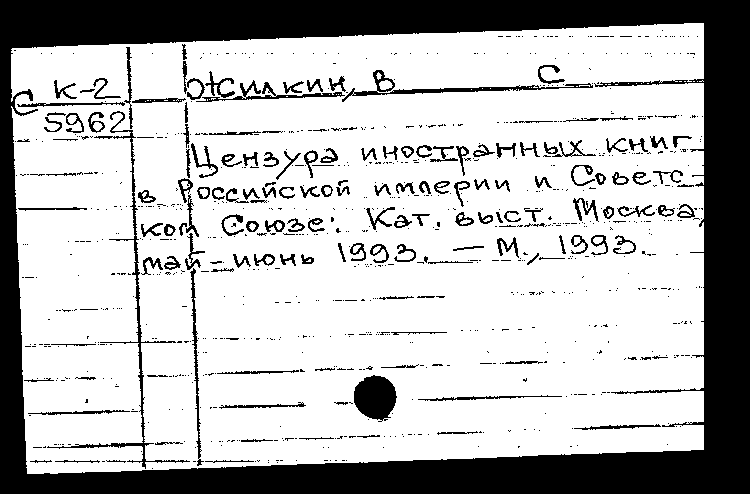 К-2 Жилкин, В С
С
5962
Цензура иностранных книг
в Российской империи и Советс-
ком Союзе: Кат. выст. Москва,
май-июнь 1993. — М., 1993.